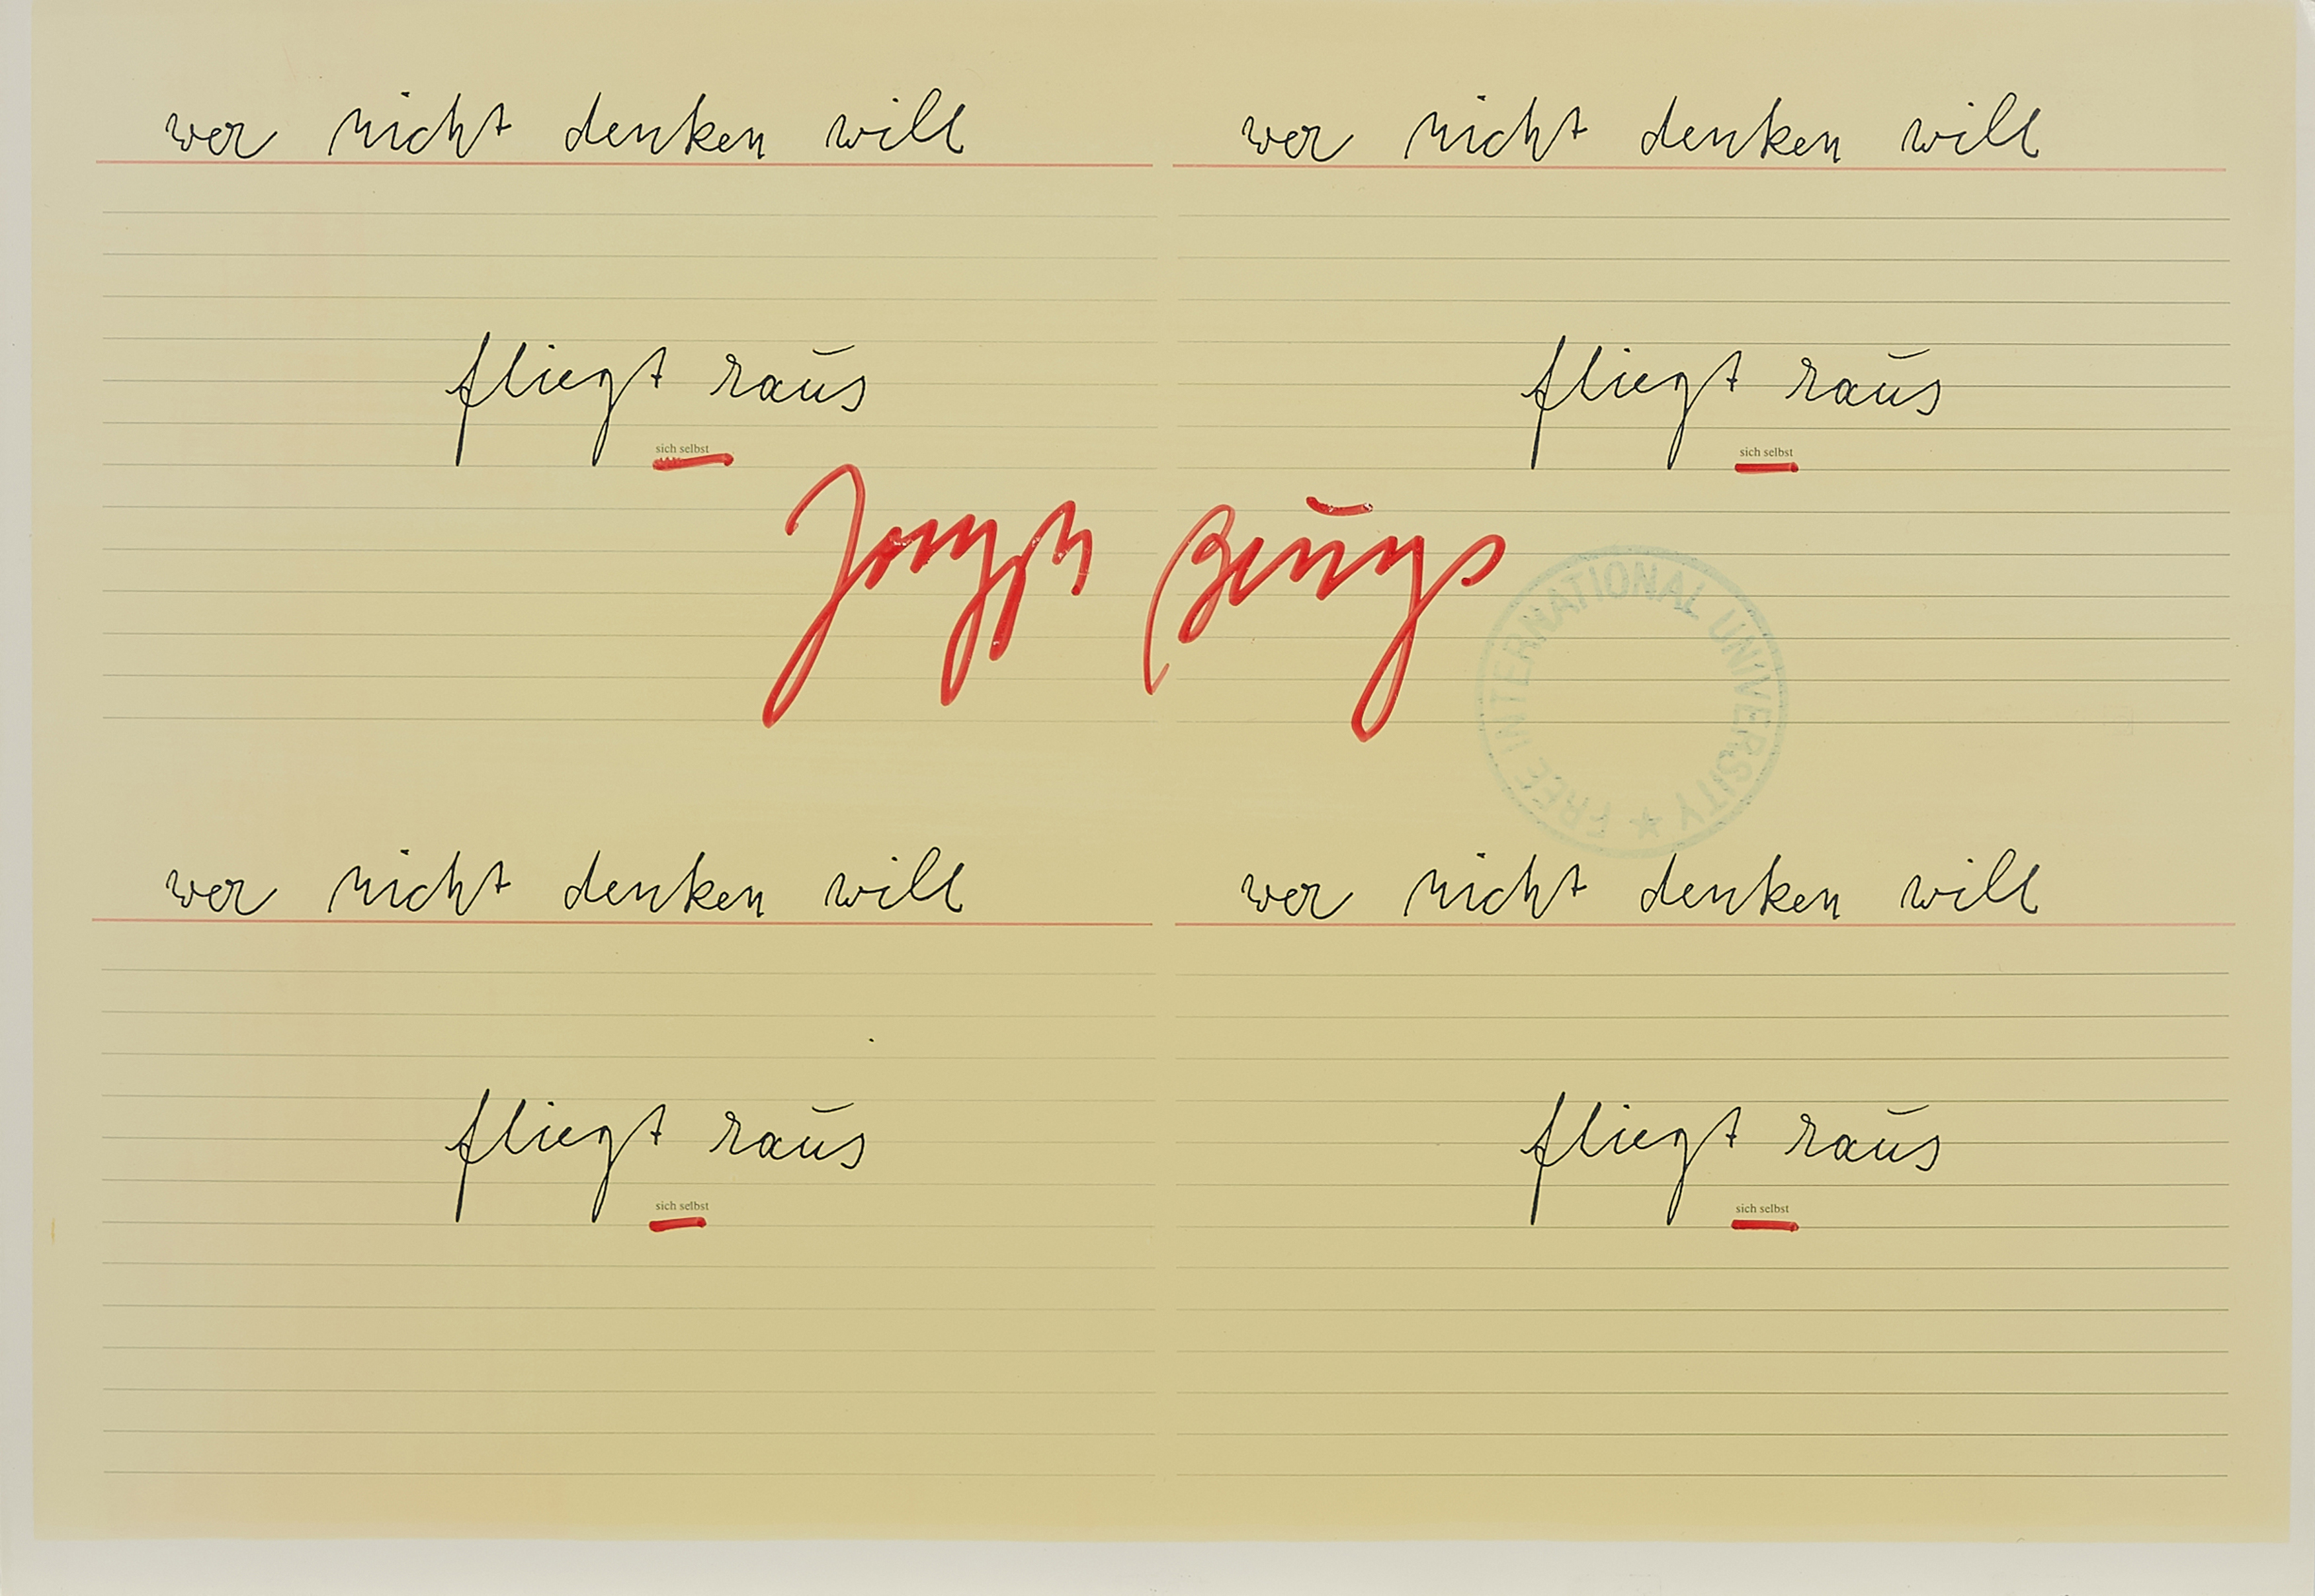 wer nicht denken will
fliegt raus
sich selbst
wer nicht denken will
fliegt raus
sich selbst
Joseph Beuys
FREE INTERNATIONAL UNIVERSITY
wer nicht denken will
fliegt raus
sich selbst
wer nicht denken will
fliegt raus
sich selbst